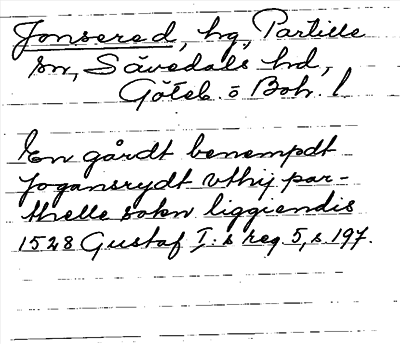 Jonsered, hg, Partille
sn, Sävedals hd,
Göteb. o Boh. l
En gårdt benempdt
Jogansrydt vthij par-
thelle sokn liggiendis
1528 Gustaf I:s reg. 5, s. 197.